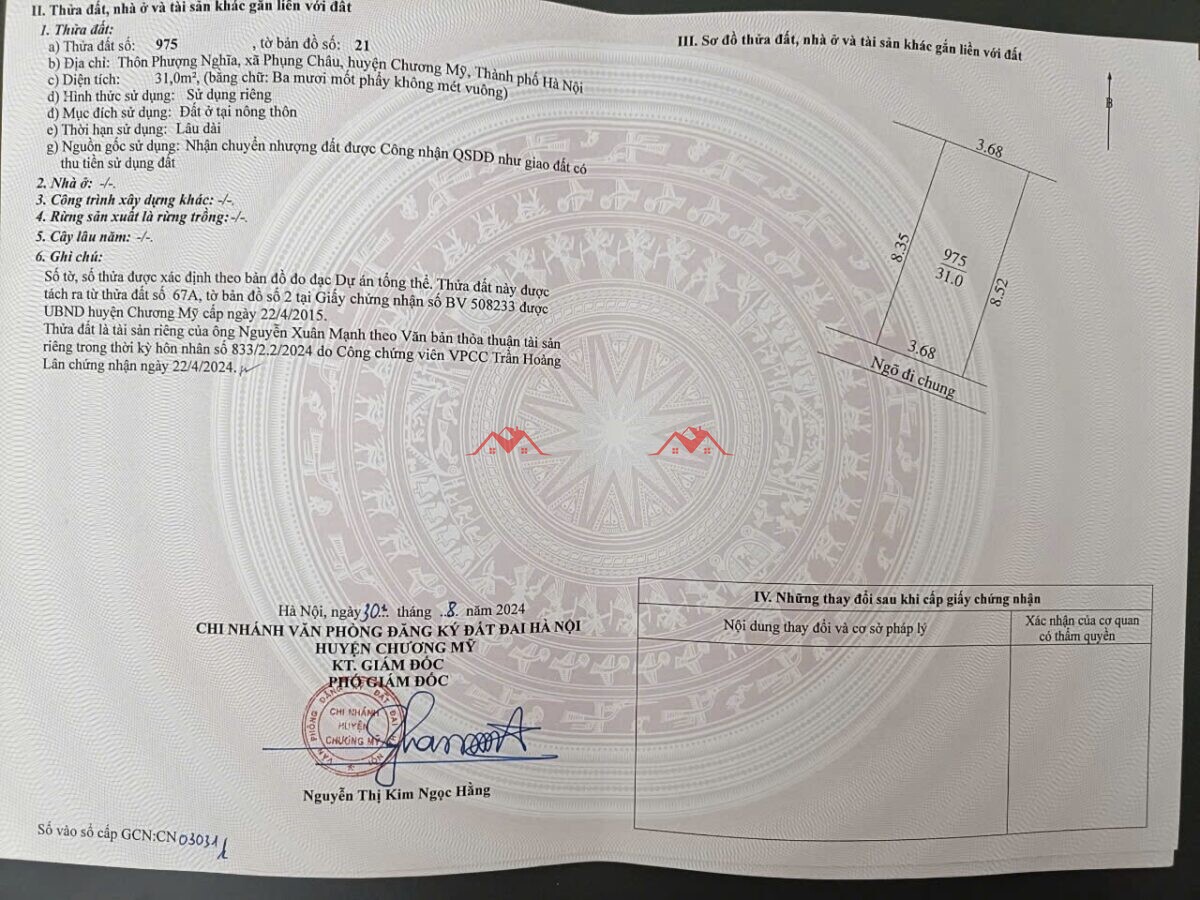 II. Thửa đất, nhà ở và tài sản khác gắn liền với đất
1. Thửa đất:
a) Thửa đất số: 975 , tờ bản đồ số: 21
b) Địa chỉ: Thôn Phượng Nghĩa, xã Phụng Châu, huyện Chương Mỹ, Thành phố Hà Nội
c) Diện tích: 31,0m², (bằng chữ: Ba mươi mốt phẩy không mét vuông)
d) Hình thức sử dụng: Sử dụng riêng
đ) Mục đích sử dụng: Đất ở tại nông thôn
e) Thời hạn sử dụng: Lâu dài
g) Nguồn gốc sử dụng: Nhận chuyển nhượng đất được Công nhận QSDĐ như giao đất có
thu tiền sử dụng đất
2. Nhà ở: -/-.
3. Công trình xây dựng khác: -/-.
4. Rừng sản xuất là rừng trồng: -/-.
5. Cây lâu năm: -/-.
6. Ghi chú:
Số tờ, số thửa được xác định theo bản đồ đo đạc Dự án tổng thể. Thửa đất này được
tách ra từ thửa đất số 67A, tờ bản đồ số 2 tại Giấy chứng nhận số BV 508233 được
UBND huyện Chương Mỹ cấp ngày 22/4/2015.
Thửa đất là tài sản riêng của ông Nguyễn Xuân Mạnh theo Văn bản thỏa thuận tài sản
riêng trong thời kỳ hôn nhân số 833/2.2/2024 do Công chứng viên VPCC Trần Hoảng
Lân chứng nhận ngày 22/4/2024.
Hà Nội, ngày 30 tháng ..8. năm 2024
CHI NHÁNH VĂN PHÒNG ĐĂNG KÝ ĐẤT ĐAI HÀ NỘI
HUYỆN CHƯƠNG MỸ
KT. GIÁM ĐỐC
PHÓ GIÁM ĐỐC
VĂN PHÒNG ĐĂNG KÝ ĐẤT ĐAI HÀ NỘI
CHI NHÁNH
HUYỆN
CHƯƠNG MỸ
Nguyễn Thị Kim Ngọc Hằng
Số vào sổ cấp GCN:CN 03031
III. Sơ đồ thửa đất, nhà ở và tài sản khác gắn liền với đất
B
3.68
8.35
975
31.0
8.52
3.68
Ngõ đi chung
IV. Những thay đổi sau khi cấp giấy chứng nhận
Nội dung thay đổi và cơ sở pháp lý
Xác nhận của cơ quan
có thẩm quyền